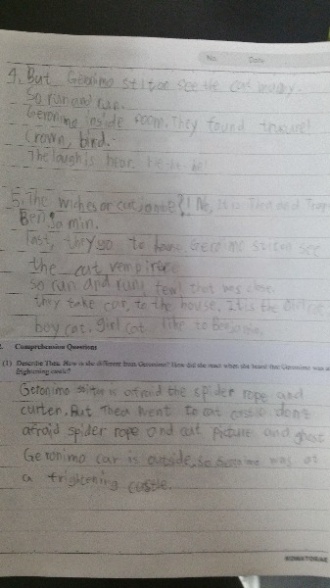 No. Date
4. But Geronimo stilton see the cat
So run and run.
Geronimo inside room. They found treasure!
Crown, bird.
The laugh is hear. he he he!
5. The witches or cat ? No, it is Thea and Trap
Ben so min.
last, they go to home. Geronimo stilton see
the cat vempirere
so run and run, that was close.
they take car, to the house. It is the
boy cat, girl cat like to Benjamin.
2. Comprehension Questions
(1) Describe Thea. How is she different from Geronimo? How did she react when she heard that Geronimo was at a
frightening castle?
Geronimo stilton is afraid the spider rope and
curten. But Thea went to cat castle don't
afraid spider rope and cat picture and ghost
Geronimo car is outside, so Geronimo was at
a frightening castle.